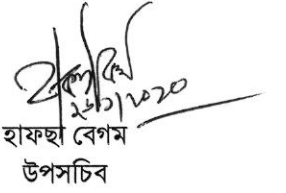 ২৬/১/২০২০
হাফছা বেগম
উপসচিব